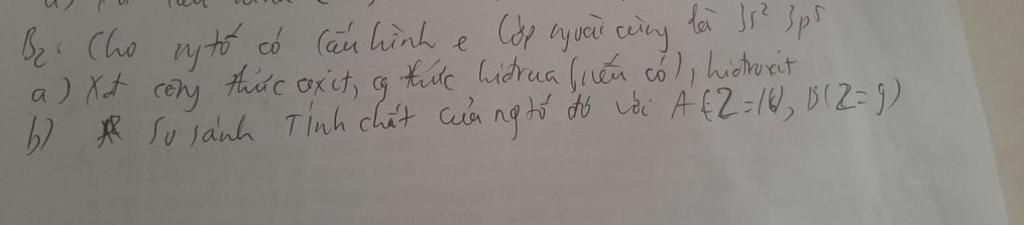 B2: Cho ngtố có Cấu hình e lớp ngoài cùng là 3s² 3p⁵
a) Xđ công thức oxit, cg thức hiđrua (nếu có), hiđroxit
b) So sánh Tính chất của ngtố đó với A (Z=16), B (Z=9)